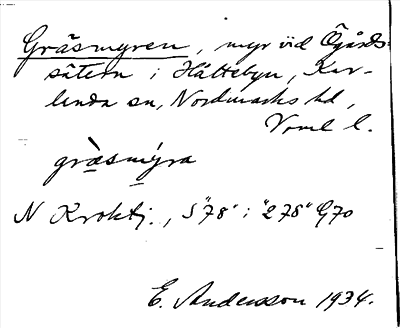 Gräsmyren, myr vid Ögårds-
sätern i Hättebyn, Kar-
landa sn, Nordmarks hd,
Vrml l.
gràsmýra
N Kroktj., S "78" i "278" G70
E. Andersson 1934.